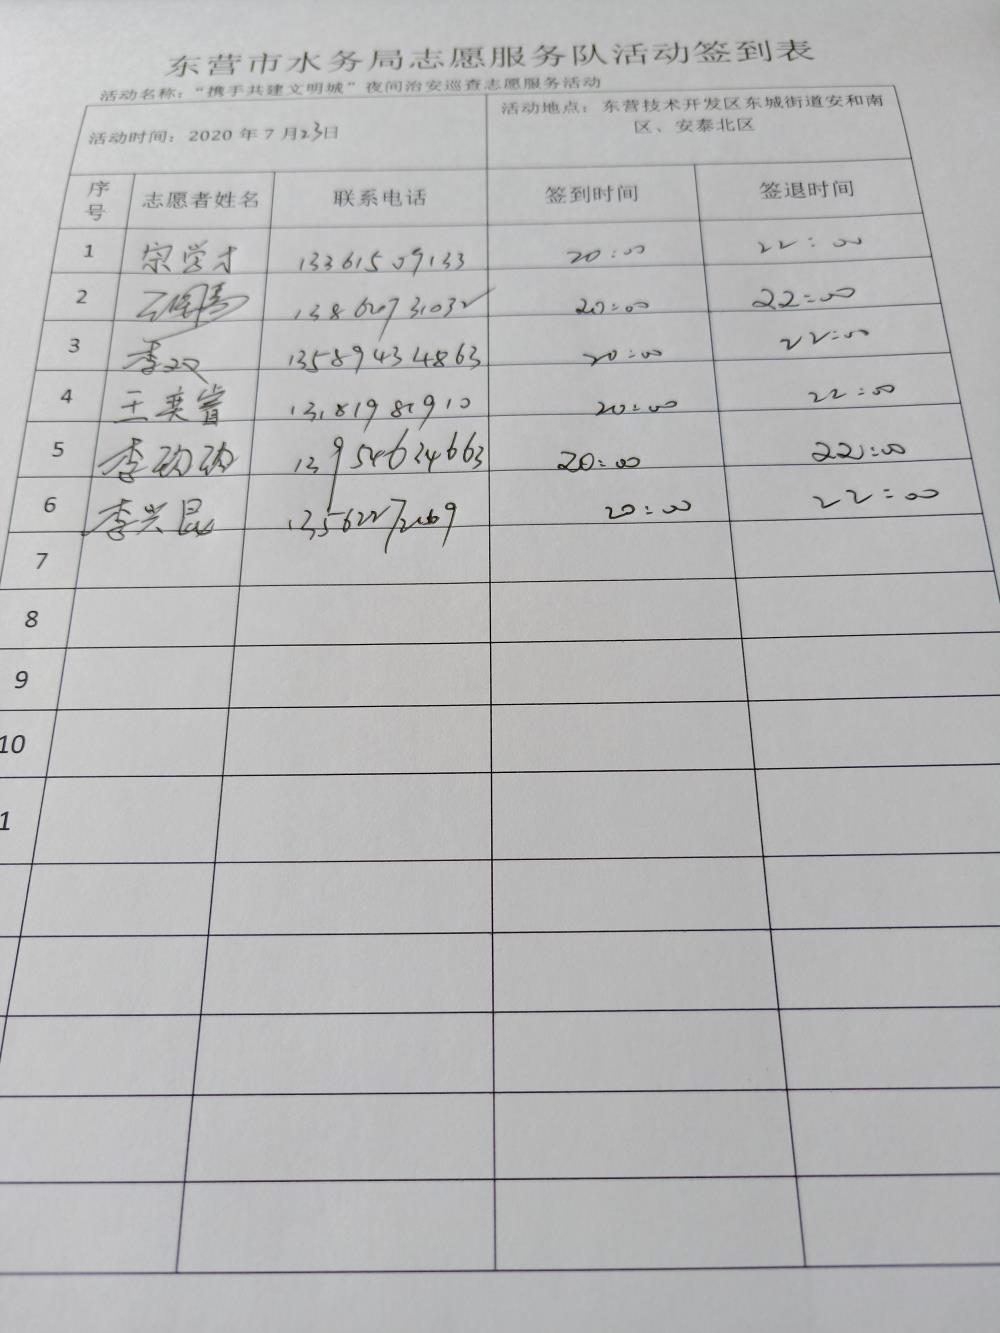 东营市水务局志愿服务队活动签到表
活动名称：“携手共建文明城”夜间治安巡查志愿服务活动
活动时间：2020 年 7 月23日
活动地点：东营技术开发区东城街道安和南
区、安泰北区
序号 志愿者姓名 联系电话 签到时间 签退时间
1 宗学才 13361509133 20:00 22:00
2 20:00 22:00
3 李双 13589434863 20:00 22:00
4 王奕睿 13181981910 20:00 22:00
5 李 13954624663 20:00 22:00
6 李兴昆 20:00 22:00
7
8
9
10
1